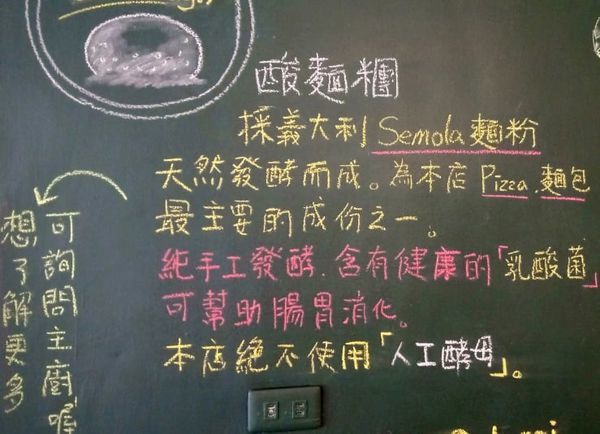 酸麵糰
採義大利Semola麵粉
天然發酵而成。為本店Pizza.麵包
最主要的成份之一。
純手工發酵.含有健康的「乳酸菌」
可幫助腸胃消化。
本店絕不使用「人工酵母」。
想了解更多
可詢問主廚喔